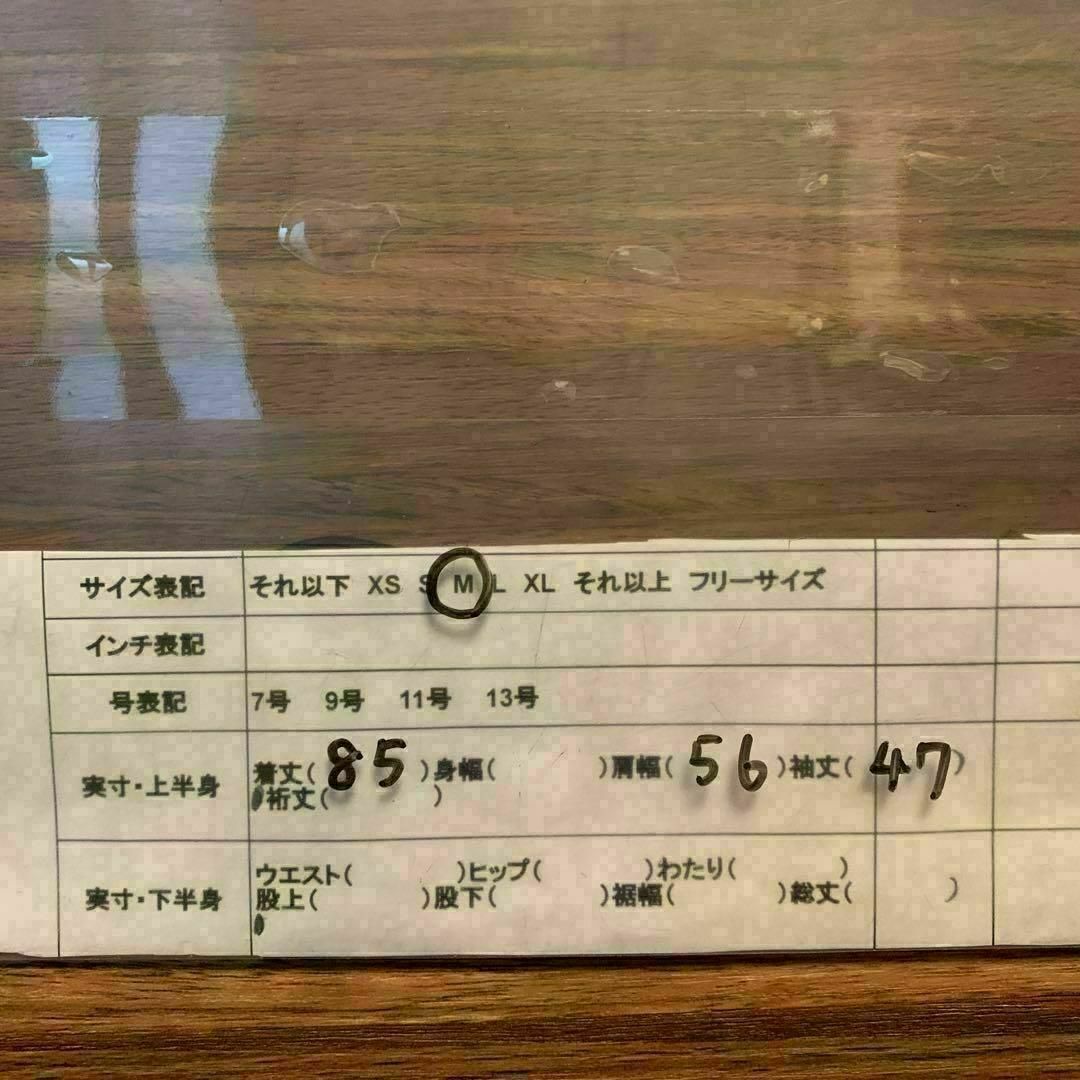 サイズ表記 それ以下 XS S M L XL それ以上 フリーサイズ
インチ表記
号表記 7号 9号 11号 13号
実寸・上半身 着丈( 85 )身幅( )肩幅( 56 )袖丈( 47 )
裄丈( )
実寸・下半身 ウエスト( )ヒップ( )わたり( )
股上( )股下( )裾幅( )総丈( )